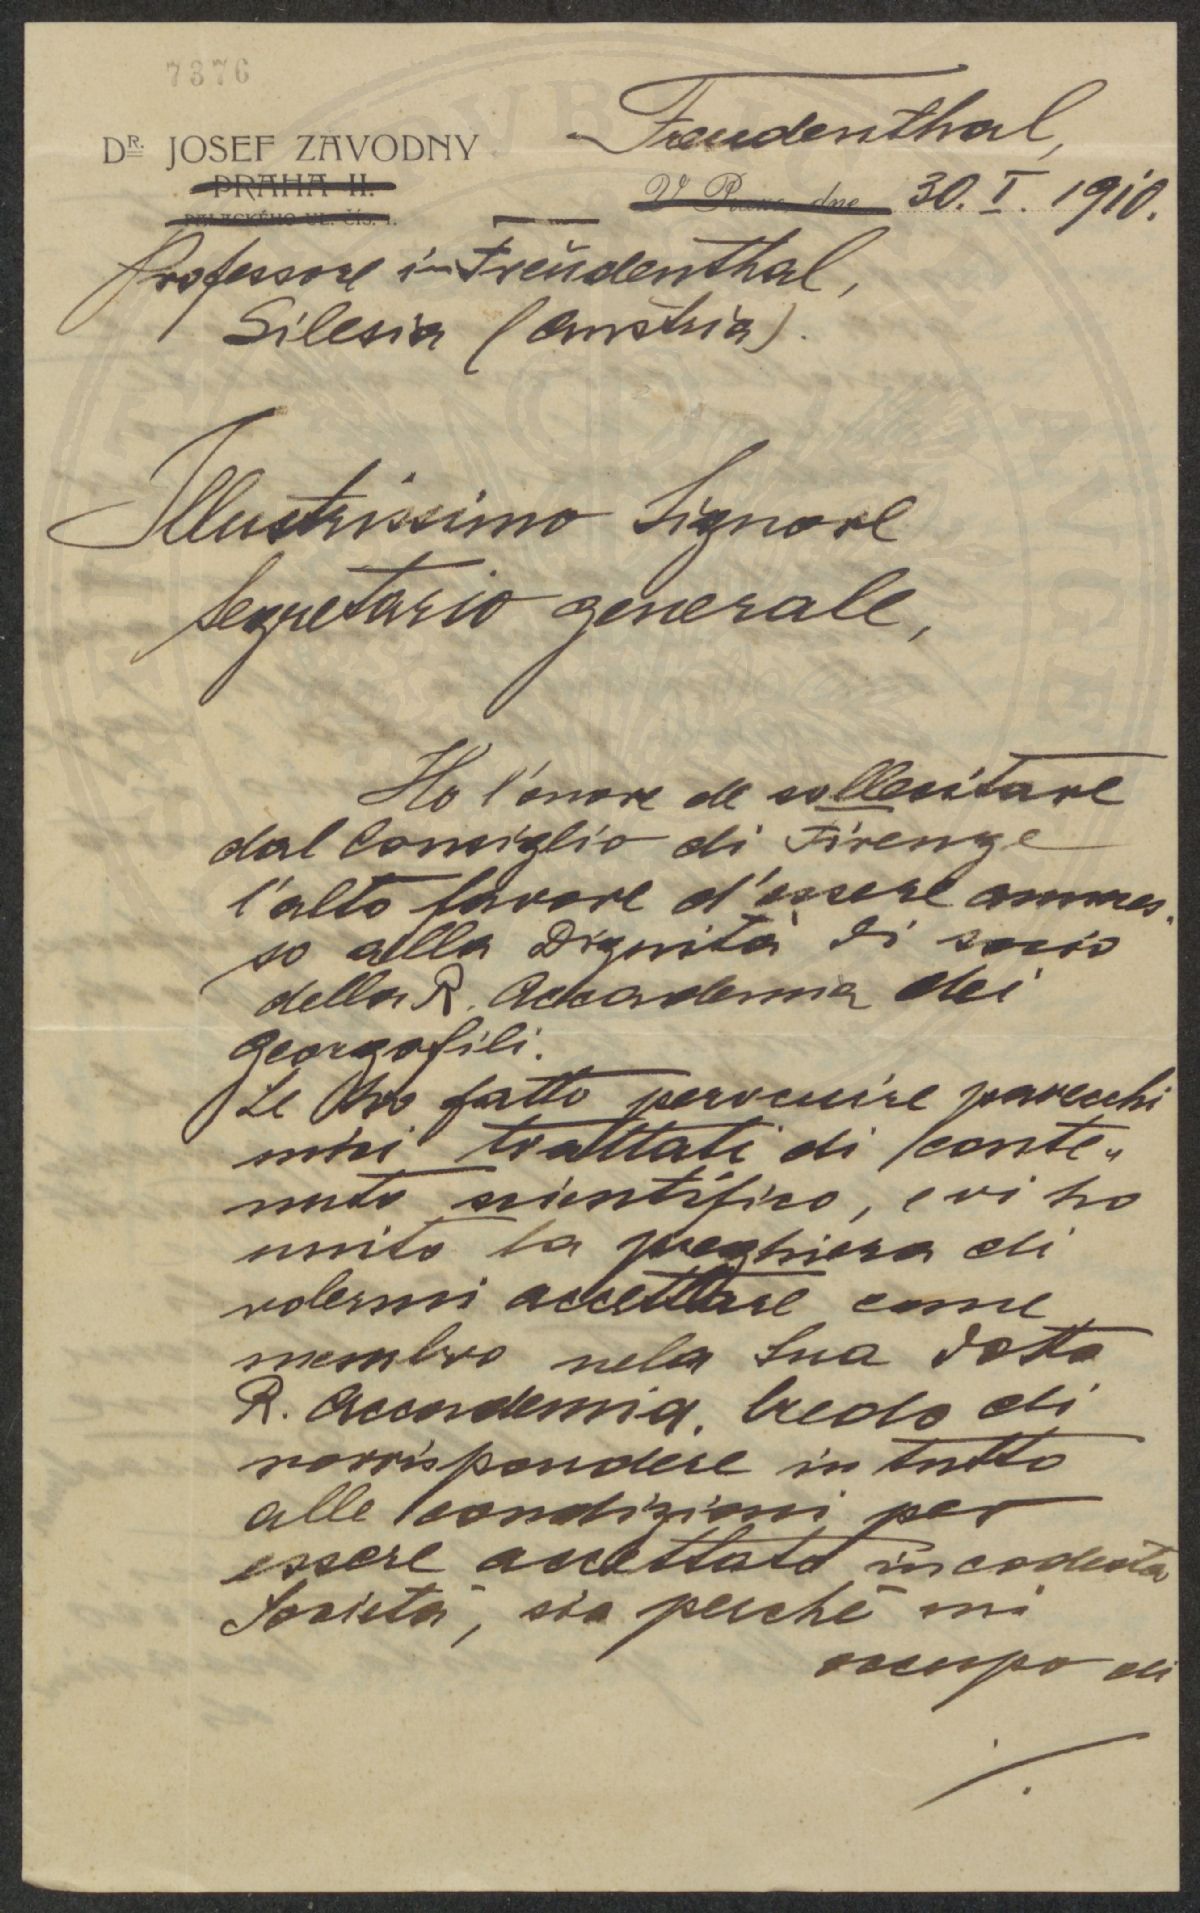 7376
Freudenthal,
DR. JOSEF ZÁVODNY
PRAHA II.
V Praze, dne 30. I. 1910.
PALACKÉHO UL. ČÍS. 1.
Professore in Freudenthal,
Silesia (Austria).
Illustrissimo Signore
Segretario generale,
Ho l'onore de sollecitare
dal Consiglio di Firenze
l'alto favore d'essere ammes-
so alla Dignità di socio
della R. Accademia dei
Georgofili.
Le ho fatto pervenire parecchi
miei trattati di conte„
nuto scientifico, e vi ho
unito la preghiera di
volermi accettare come
membro nela Sua dotta
R. Accademia. Credo di
corrispondere in tutto
alle condizioni per
essere accettato in codesta
Società, sia perchè mi
occupo di
./.